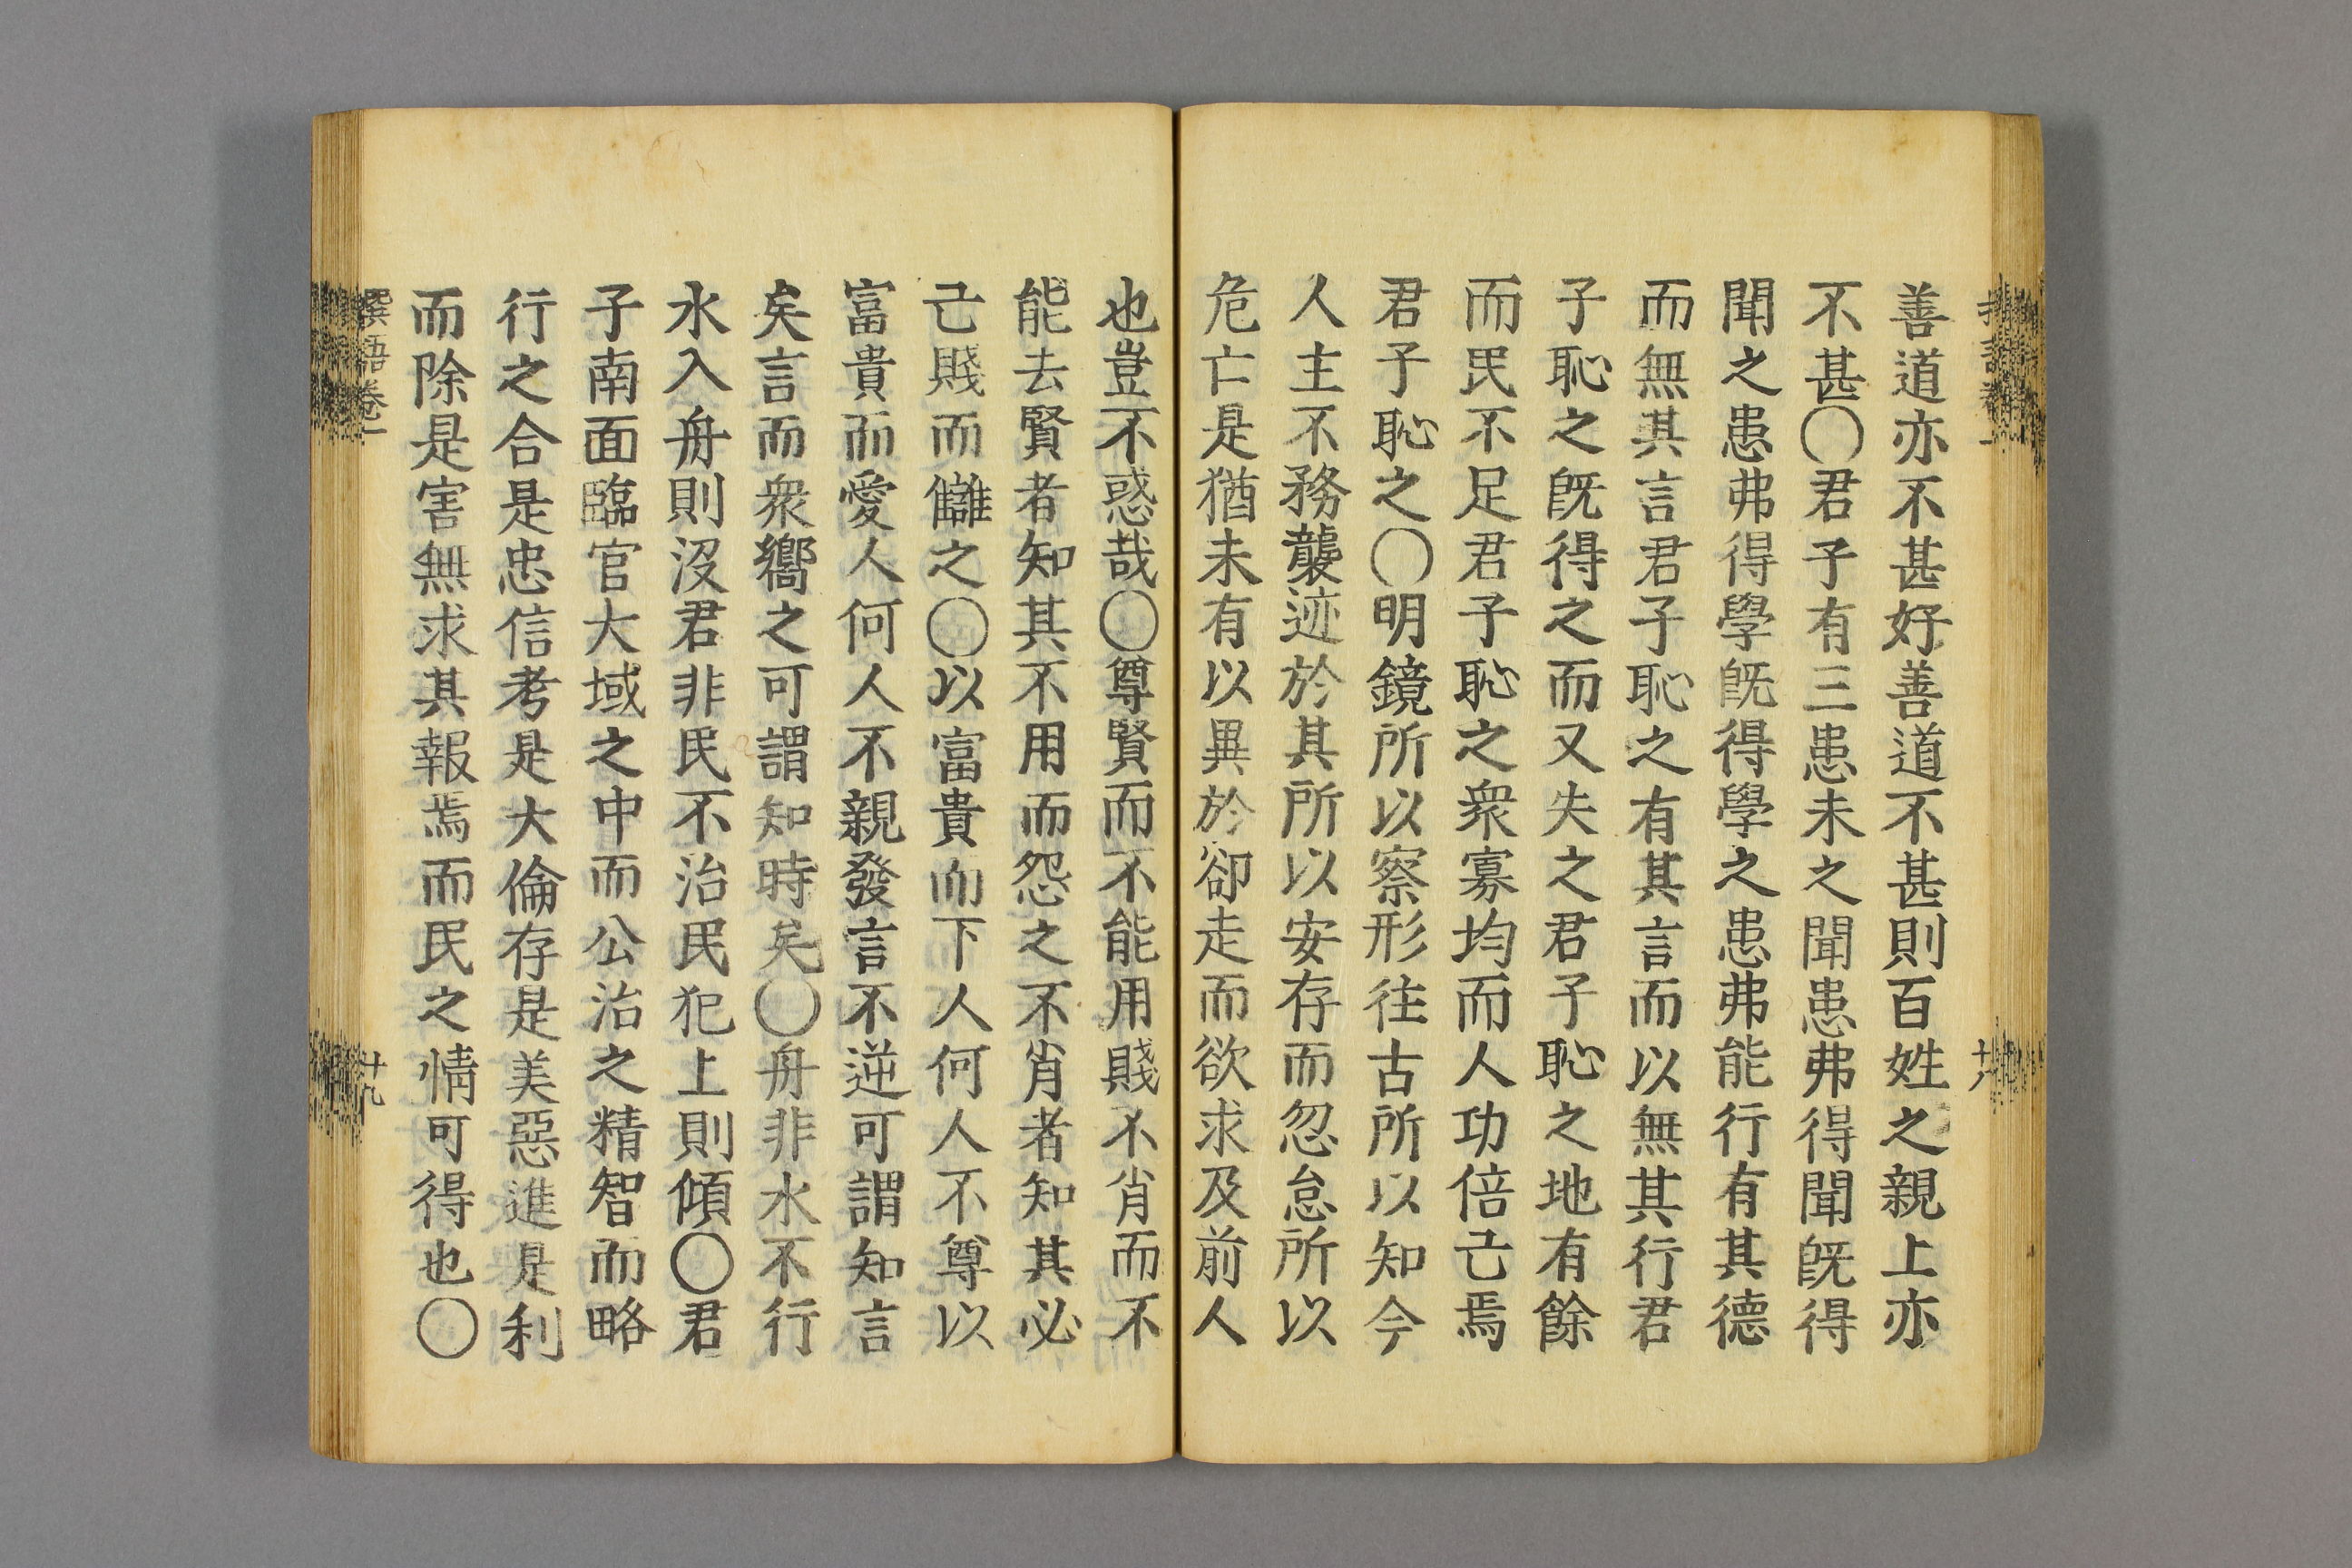 善道亦不甚好善道不甚則百姓之親上亦
不甚〇君子有三患未之聞患弗得聞旣得
聞之患弗得學旣得學之患弗能行有其德
而無其言君子恥之有其言而以無其行君
子恥之旣得之而又失之君子恥之地有餘
而民不足君子恥之衆寡均而人功倍己焉
君子恥之〇明鏡所以察形往古所以知今
人主不務襲迹於其所以安存而忽怠所以
危亡是猶未有以異於卻走而欲求及前人
也豈不惑哉〇尊賢而不能用賤不肖而不
能去賢者知其不用而怨之不肖者知其必
己賤而讎之〇以富貴而下人何人不尊以
富貴而愛人何人不親發言不逆可謂知言
矣言而衆嚮之可謂知時矣〇舟非水不行
水入舟則沒君非民不治民犯上則傾〇君
子南面臨官大域之中而公治之精智而略
行之合是忠信考是大倫存是美惡進是利
而除是害無求其報焉而民之情可得也〇
撰語卷一
廿九